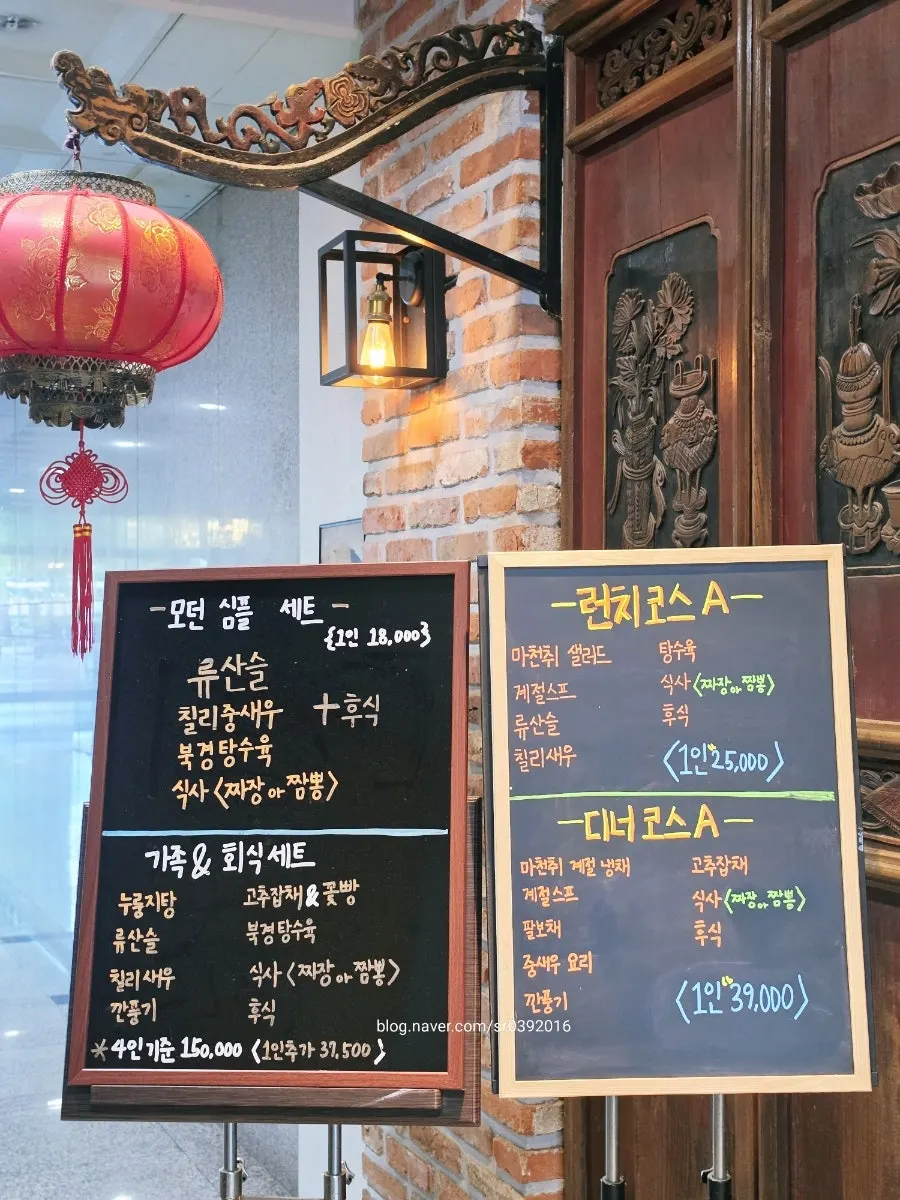 -모던 심플 세트-
{1인 18,000}
류산슬
칠리중새우 +후식
북경탕수육
식사〈짜장 or 짬뽕〉
가족& 회식세트
누룽지탕 고추잡채&꽃빵
류산슬 북경탕수육
칠리새우 식사〈짜장 or 짬뽕〉
깐풍기 후식
*4인기준 150,000 〈1인추가 37,500〉
-런치코스 A-
마천취 샐러드 탕수육
계절스프 식사〈짜장or짬뽕〉
류산슬 후식
칠리새우 〈1인 25,000〉
-디너코스 A-
마천취 계절 냉채 고추잡채
계절스프 식사〈짜장or짬뽕〉
팔보채 후식
중새우 요리
깐풍기 〈1인 39,000〉
blog.naver.com/sr0392016